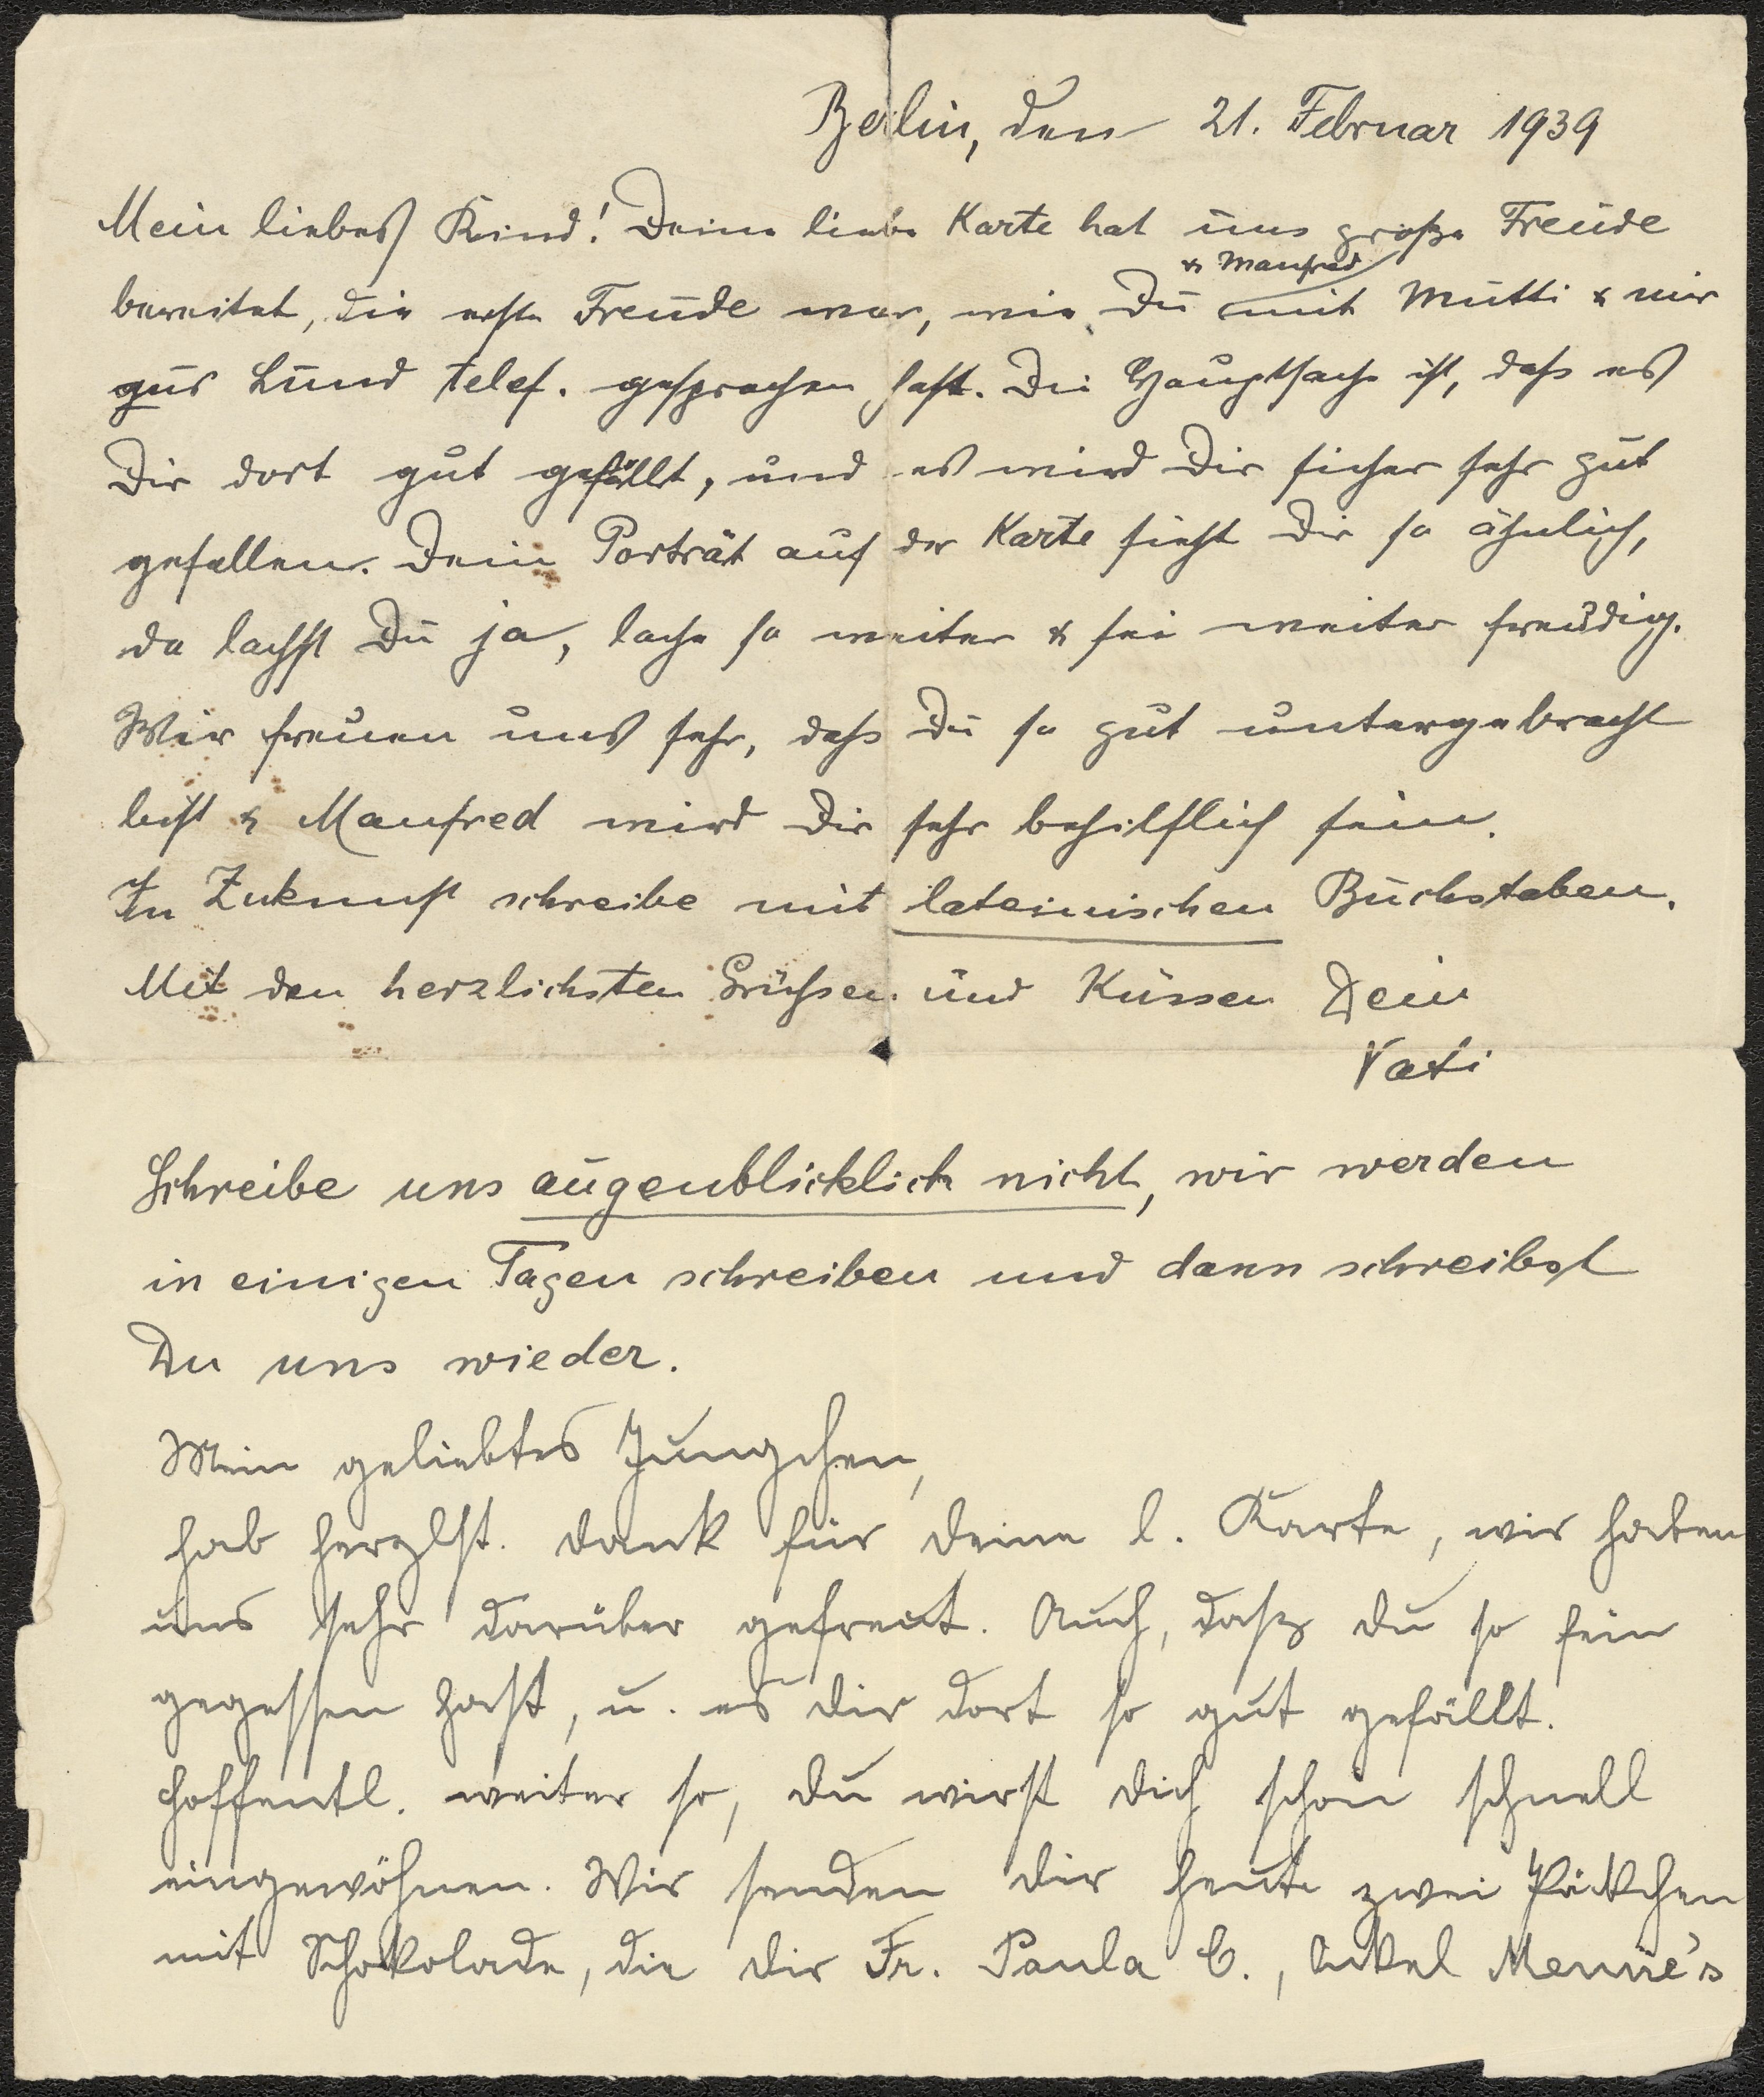 Berlin, den 21. Februar 1939
Mein liebes Kind! Deine liebe Karte hat uns große Freude
& Manfred
bereitet, die erste Freude war, wie Du mit Mutti & mir
aus Lund telef. gesprochen hast. Die Hauptsache ist, dass es
Dir dort gut gefällt, und es wird Dir sicher sehr gut
gefallen. Dein Porträt auf der Karte sieht Dir so ähnlich,
da lachst Du ja, lache so weiter & sei weiter freudig.
Wir freuen uns sehr, dass Du so gut untergebracht
bist & Manfred wird Dir sehr behilflich sein.
In Zukunft schreibe mit lateinischen Buchstaben.
Mit den herzlichsten Grüssen und Küssen Dein
Vati
Schreibe uns augenblicklich nicht, wir werden
in einigen Tagen schreiben und dann schreibst
Du uns wieder.
Mein geliebtes Jungchen,
hab herzlst. Dank für Deine l. Karte, wir haben
uns sehr darüber gefreut. Auch, dasz Du so fein
gegessen hast, u. es Dir dort so gut gefällt.
Hoffentl. weiter so, Du wirst Dich schon schnell
eingewöhnen. Wir senden Dir heute zwei Päckchen
mit Schokolade, die Dir Fr. Paula C., Onkel